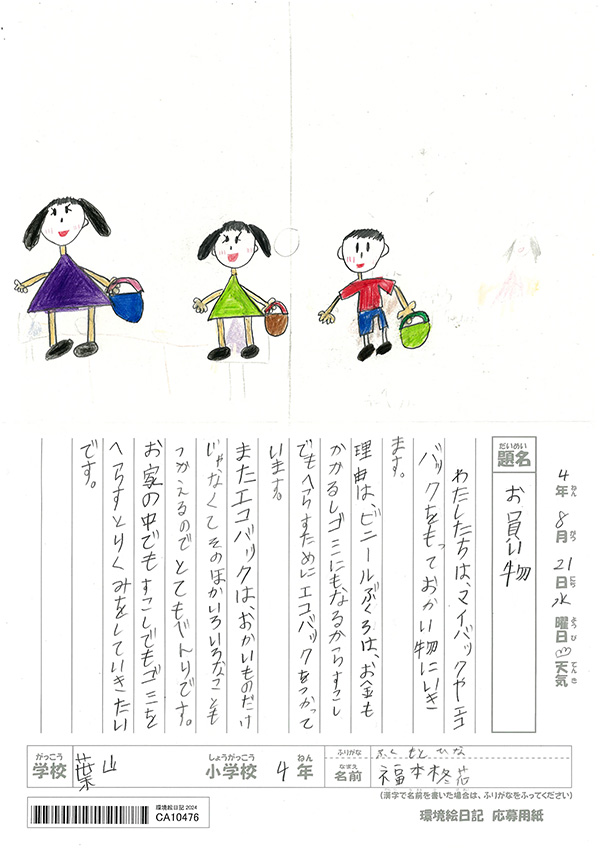 4年 8月 21日 水曜日 天気
ねん がつ にち ようび てんき
だいめい
題名
お買い物
わたしたちは、マイバックやエコ
バックをもっておかい物にいき
ます。
理由は、ビニールぶくろは、お金も
かかるしゴミにもなるからすこし
でもへらすためにエコバックをつかって
います。
またエコバックは、おかいものだけ
じゃなくてそのほかいろいろなことも
つかえるのでとてもべんりです。
お家の中でもすこしでもゴミを
へらすとりくみをしていきたい
です。
がっこう しょうがっこう ねん
学校 葉山 小学校 4年
ふりがな ふくもと ひな
なまえ
名前 福本柊花
(漢字で名前を書いた場合は、ふりがなをふってください)
環境絵日記 2024
CA10476
環境絵日記 応募用紙